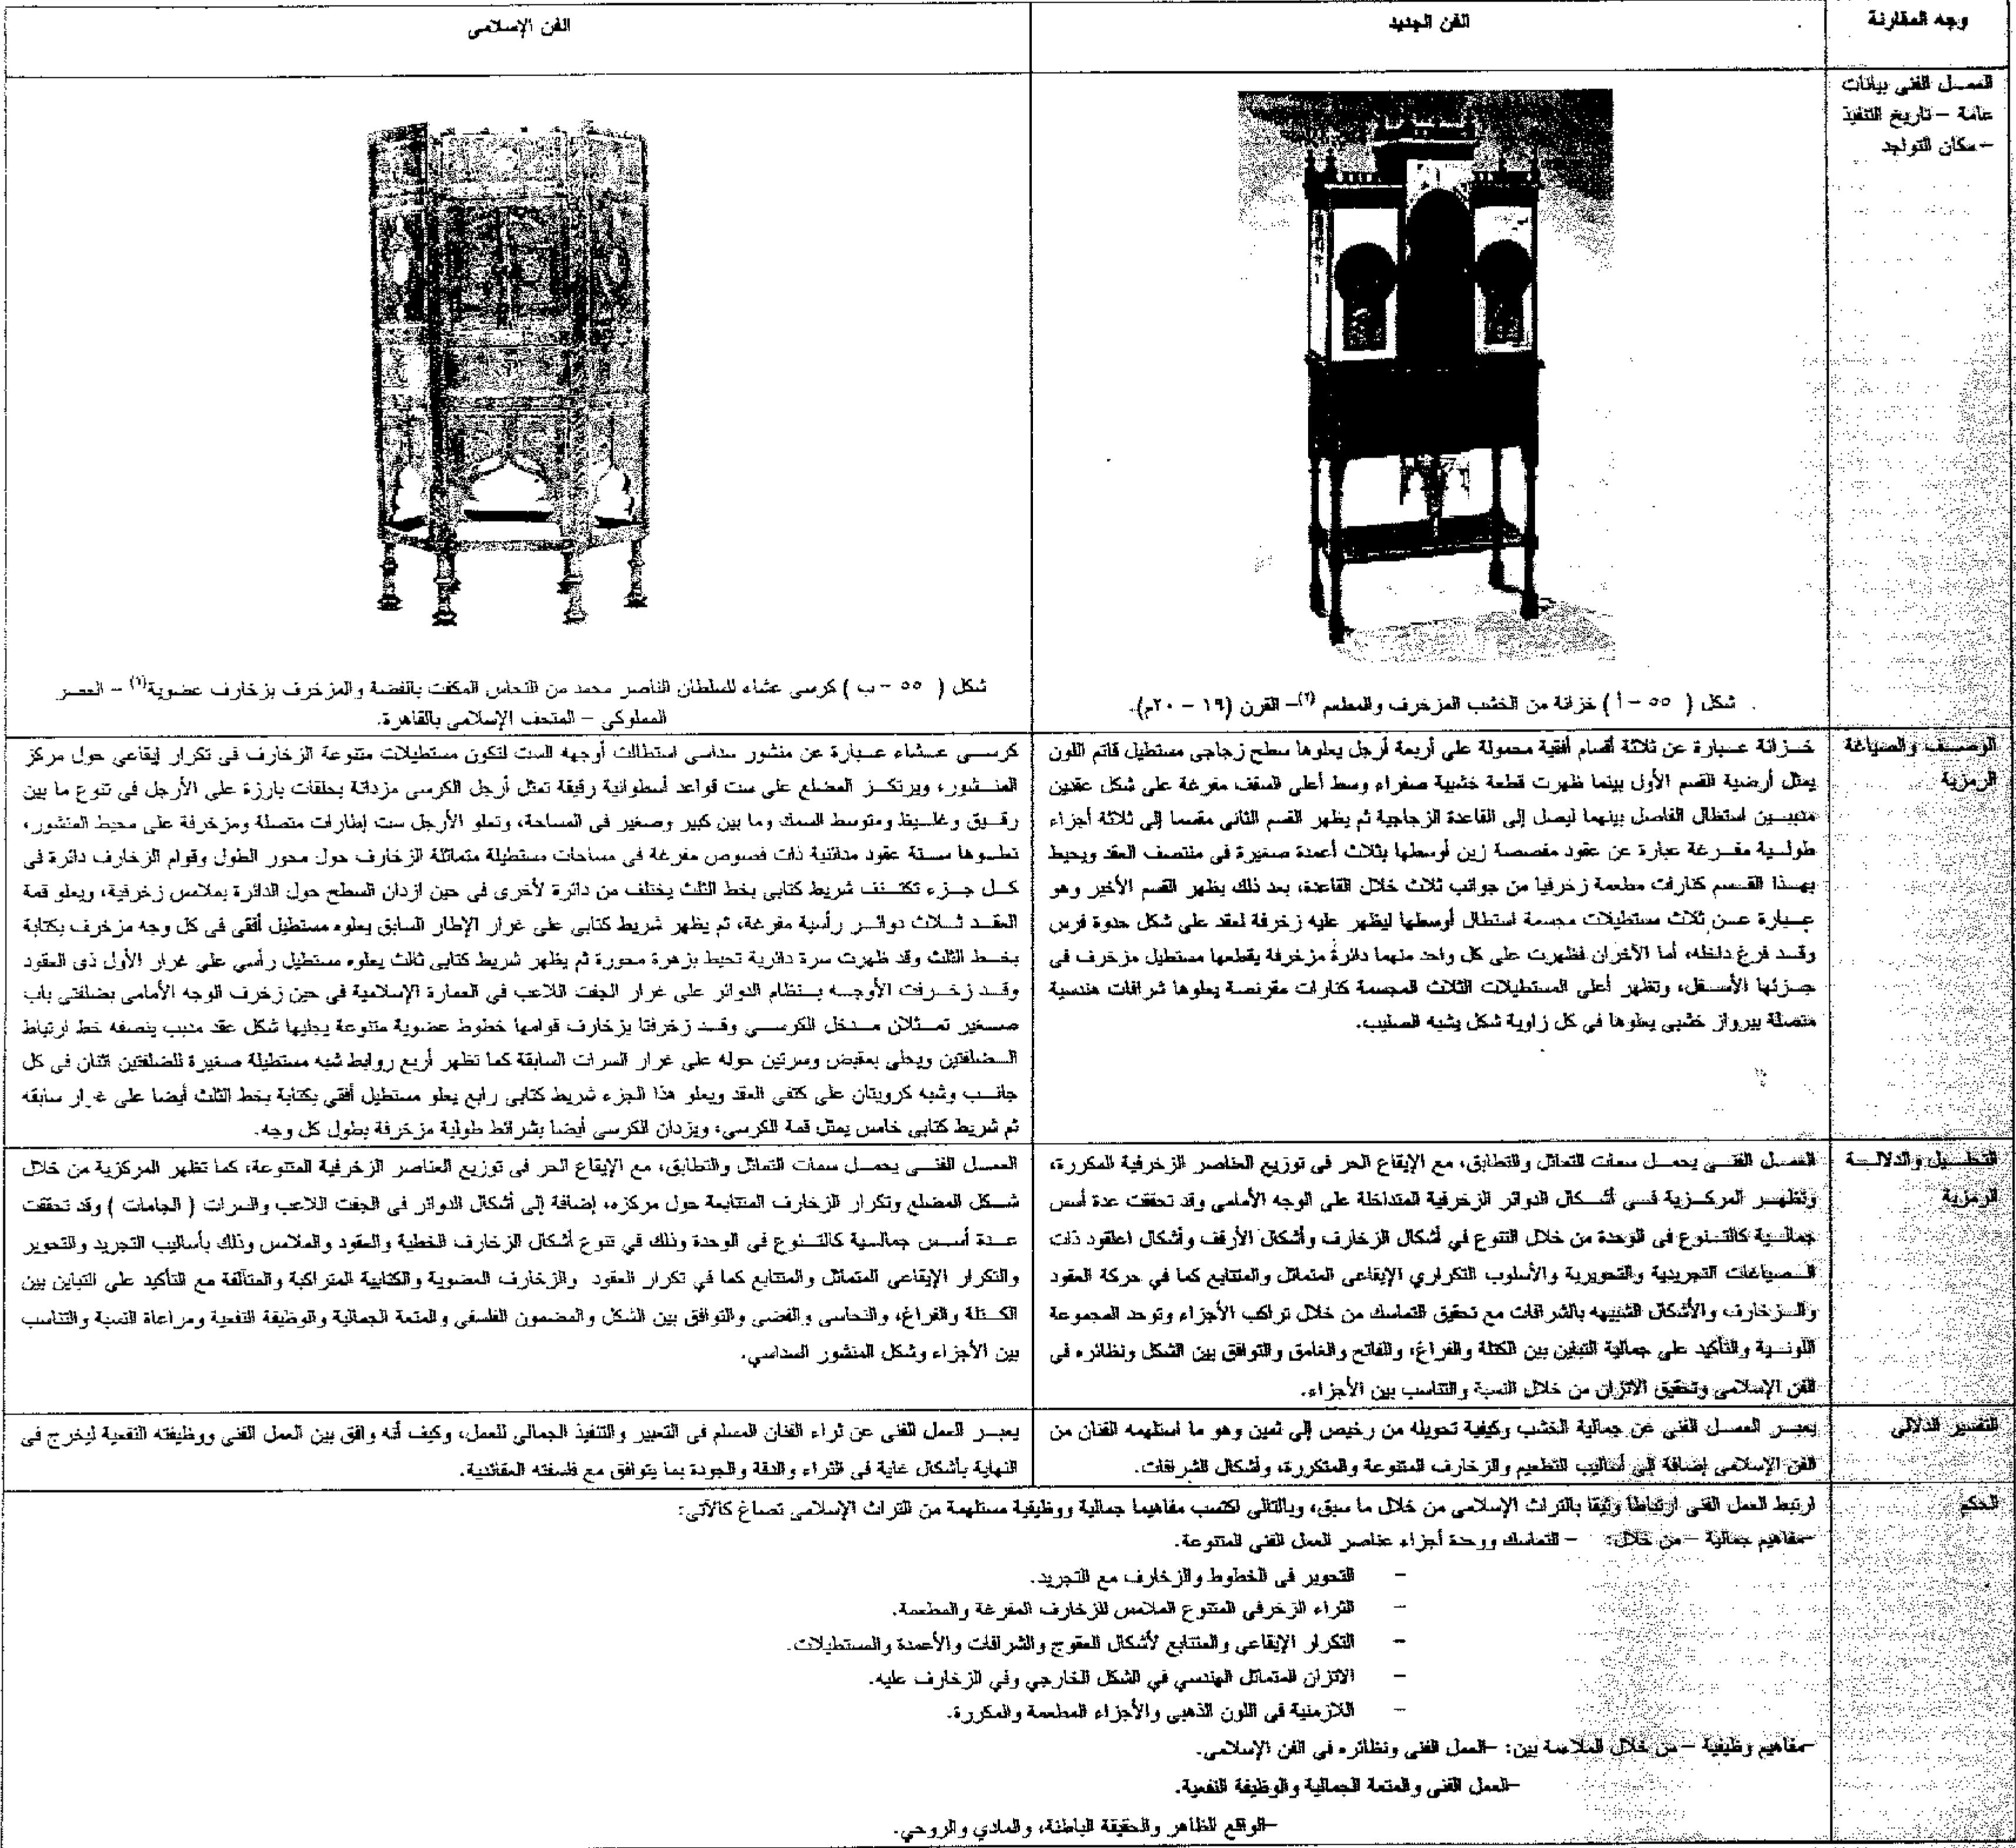 وجه المقارنة
الفن الجديد
الفن الإسلامى
العمل الفنى بيانات
عامة – تاريخ التنفيذ
– مكان التواجد
شكل ( ٥٥ – أ ) خزانة من الخشب المزخرف والمطعم (٢)– القرن (١٩ – ٢٠م).
شكل ( ٥٥ – ب ) كرسى عشاء للسلطان الناصر محمد من النحاس المكفت بالفضة والمزخرف بزخارف عضوية(١) – العصر
المملوكى – المتحف الإسلامى بالقاهرة.
الوصف والصياغة
الرمزية
خزانة عبارة عن ثلاثة أقسام أفقية محمولة على أربعة أرجل يعلوها سطح زجاجى مستطيل قاتم اللون
يمثل أرضية القسم الأول بينما ظهرت قطعة خشبية صفراء وسط أعلى السقف مفرغة على شكل عقدين
مدببين استطال الفاصل بينهما ليصل إلى القاعدة الزجاجية ثم يظهر القسم الثانى مقسما إلى ثلاثة أجزاء
طولية مفرغة عبارة عن عقود مفصصة زين أوسطها بثلاث أعمدة صغيرة فى منتصف العقد ويحيط
بهذا القسم كنارات مطعمة زخرفيا من جوانب ثلاث خلال القاعدة، بعد ذلك يظهر القسم الأخير وهو
عبارة عن ثلاث مستطيلات مجسمة استطال أوسطها ليظهر عليه زخرفة لعقد على شكل حدوة فرس
وقد فرغ داخله، أما الآخران فظهرت على كل واحد منهما دائرة مزخرفة يقطعها مستطيل مزخرف فى
جزئها الأسفل، وتظهر أعلى المستطيلات الثلاث المجسمة كنارات مقرنصة يعلوها شرافات هندسية
متصلة ببرواز خشبى يعلوها فى كل زاوية شكل يشبه الصليب.
كرسى عشاء عبارة عن منشور سداسى استطالت أوجهه الست لتكون مستطيلات متنوعة الزخارف فى تكرار إيقاعى حول مركز
المنشور، ويرتكز المضلع على ست قواعد أسطوانية رقيقة تمثل أرجل الكرسى مزدانة بحلقات بارزة على الأرجل فى تنوع ما بين
رقيق وغليظ ومتوسط السمك وما بين كبير وصغير فى المساحة، وتعلو الأرجل ست إطارات متصلة ومزخرفة على محيط المنشور،
تعلوها ستة عقود مدائنية ذات فصوص مفرغة فى مساحات مستطيلة متماثلة الزخارف حول محور الطول وقوام الزخارف دائرة فى
كل جزء تكتنف شريط كتابى بخط الثلث يختلف من دائرة لأخرى فى حين ازدان السطح حول الدائرة بملامس زخرفية، ويعلو قمة
العقد ثلاث دوائر رأسية مفرغة، ثم يظهر شريط كتابى على غرار الإطار السابق يعلوه مستطيل أفقى فى كل وجه مزخرف بكتابة
بخط الثلث وقد ظهرت سرة دائرية تحيط بزهرة محورة ثم يظهر شريط كتابى ثالث يعلوه مستطيل رأسي على غرار الأول ذى العقود
وقد زخرفت الأوجه بنظام الدوائر على غرار الجفت اللاعب فى العمارة الإسلامية فى حين زخرف الوجه الأمامى بضلفتى باب
صغير تمثلان مدخل الكرسى وقد زخرفتا بزخارف قوامها خطوط عضوية متنوعة يجليها شكل عقد مدبب ينصفه خط ارتباط
الضلفتين ويحلى بمقبض وسرتين حوله على غرار السرات السابقة كما تظهر أربع روابط شبه مستطيلة صغيرة للضلفتين اثنان فى كل
جانب وشبه كرويتان على كتفى العقد ويعلو هذا الجزء شريط كتابى رابع يعلو مستطيل أفقى بكتابة بخط الثلث أيضا على غرار سابقه
ثم شريط كتابى خامس يمثل قمة الكرسى، ويزدان الكرسى أيضا بشرائط طولية مزخرفة بطول كل وجه.
التحليل والدلالة
الرمزية
العمل الفنى يحمل سمات التماثل والتطابق، مع الإيقاع الحر فى توزيع العناصر الزخرفية المكررة،
وتظهر المركزية فى أشكال الدوائر الزخرفية المتداخلة على الوجه الأمامى وقد تحققت عدة أسس
جمالية كالتنوع فى الوحدة من خلال التنوع في أشكال الزخارف وأشكال الأرفف وأشكال اعلقود ذات
الصياغات التجريدية والتحويرية والأسلوب التكراري الإيقاعى المتماثل والمتتابع كما في حركة العقود
والزخارف والأشكال الشبيهه بالشرافات مع تحقيق التماسك من خلال تراكب الأجزاء وتوحد المجموعة
اللونية والتأكيد على جمالية التباين بين الكتلة والفراغ، والفاتح والغامق والتوافق بين الشكل ونظائره فى
الفن الإسلامى وتحقيق الاتزان من خلال النسبة والتناسب بين الأجزاء.
العمل الفنى يحمل سمات التماثل والتطابق، مع الإيقاع الحر فى توزيع العناصر الزخرفية المتنوعة، كما تظهر المركزية من خلال
شكل المضلع وتكرار الزخارف المتتابعة حول مركزه، إضافة إلى أشكال الدوائر فى الجفت اللاعب والسرات ( الجامات ) وقد تحققت
عدة أسس جمالية كالتنوع فى الوحدة وذلك في تنوع أشكال الزخارف الخطية والعقود والملامس وذلك بأساليب التجريد والتحوير
والتكرار الإيقاعى المتماثل والمتتابع كما في تكرار العقود والزخارف العضوية والكتابية المتراكبة والمتآلفة مع التأكيد على التباين بين
الكتلة والفراغ، والنحاسى والفضى والتوافق بين الشكل والمضمون الفلسفى والمتعة الجمالية والوظيفة النفعية ومراعاة النسبة والتناسب
بين الأجزاء وشكل المنشور السداسي.
التفسير الدلالى
يعبر العمل الفنى عن جمالية الخشب وكيفية تحويله من رخيص إلى ثمين وهو ما استلهمه الفنان من
الفن الإسلامى إضافة إلى أساليب التطعيم والزخارف المتنوعة والمتكررة، وأشكال الشرافات.
يعبر العمل الفنى عن ثراء الفنان المسلم فى التعبير والتنفيذ الجمالي للعمل، وكيف أنه وافق بين العمل الفنى ووظيفته النفعية ليخرج فى
النهاية بأشكال غاية فى الثراء والدقة والجودة بما يتوافق مع فلسفته العقائدية.
الحكم
ارتبط العمل الفنى ارتباطا وثيقا بالتراث الإسلامى من خلال ما سبق، وبالتالى اكتسب مفاهيما جمالية ووظيفية مستلهمة من التراث الإسلامى تصاغ كالآتى:
–مفاهيم جمالية – من خلال: – التماسك ووحدة أجزاء عناصر العمل الفنى المتنوعة.
– التحوير فى الخطوط والزخارف مع التجريد.
– الثراء الزخرفى المتنوع الملامس للزخارف المفرغة والمطعمة.
– التكرار الإيقاعى والمتتابع لأشكال العقوج والشرافات والأعمدة والمستطيلات.
– الاتزان المتماثل الهندسي في الشكل الخارجي وفي الزخارف عليه.
– اللازمنية فى اللون الذهبى والأجزاء المطعمة والمكررة.
–مفاهيم وظيفية – من خلال الملاءمة بين: –العمل الفنى ونظائره فى الفن الإسلامى.
–العمل الفنى والمتعة الجمالية والوظيفة النفعية.
–الواقع الظاهر والحقيقة الباطنة، والمادي والروحي.